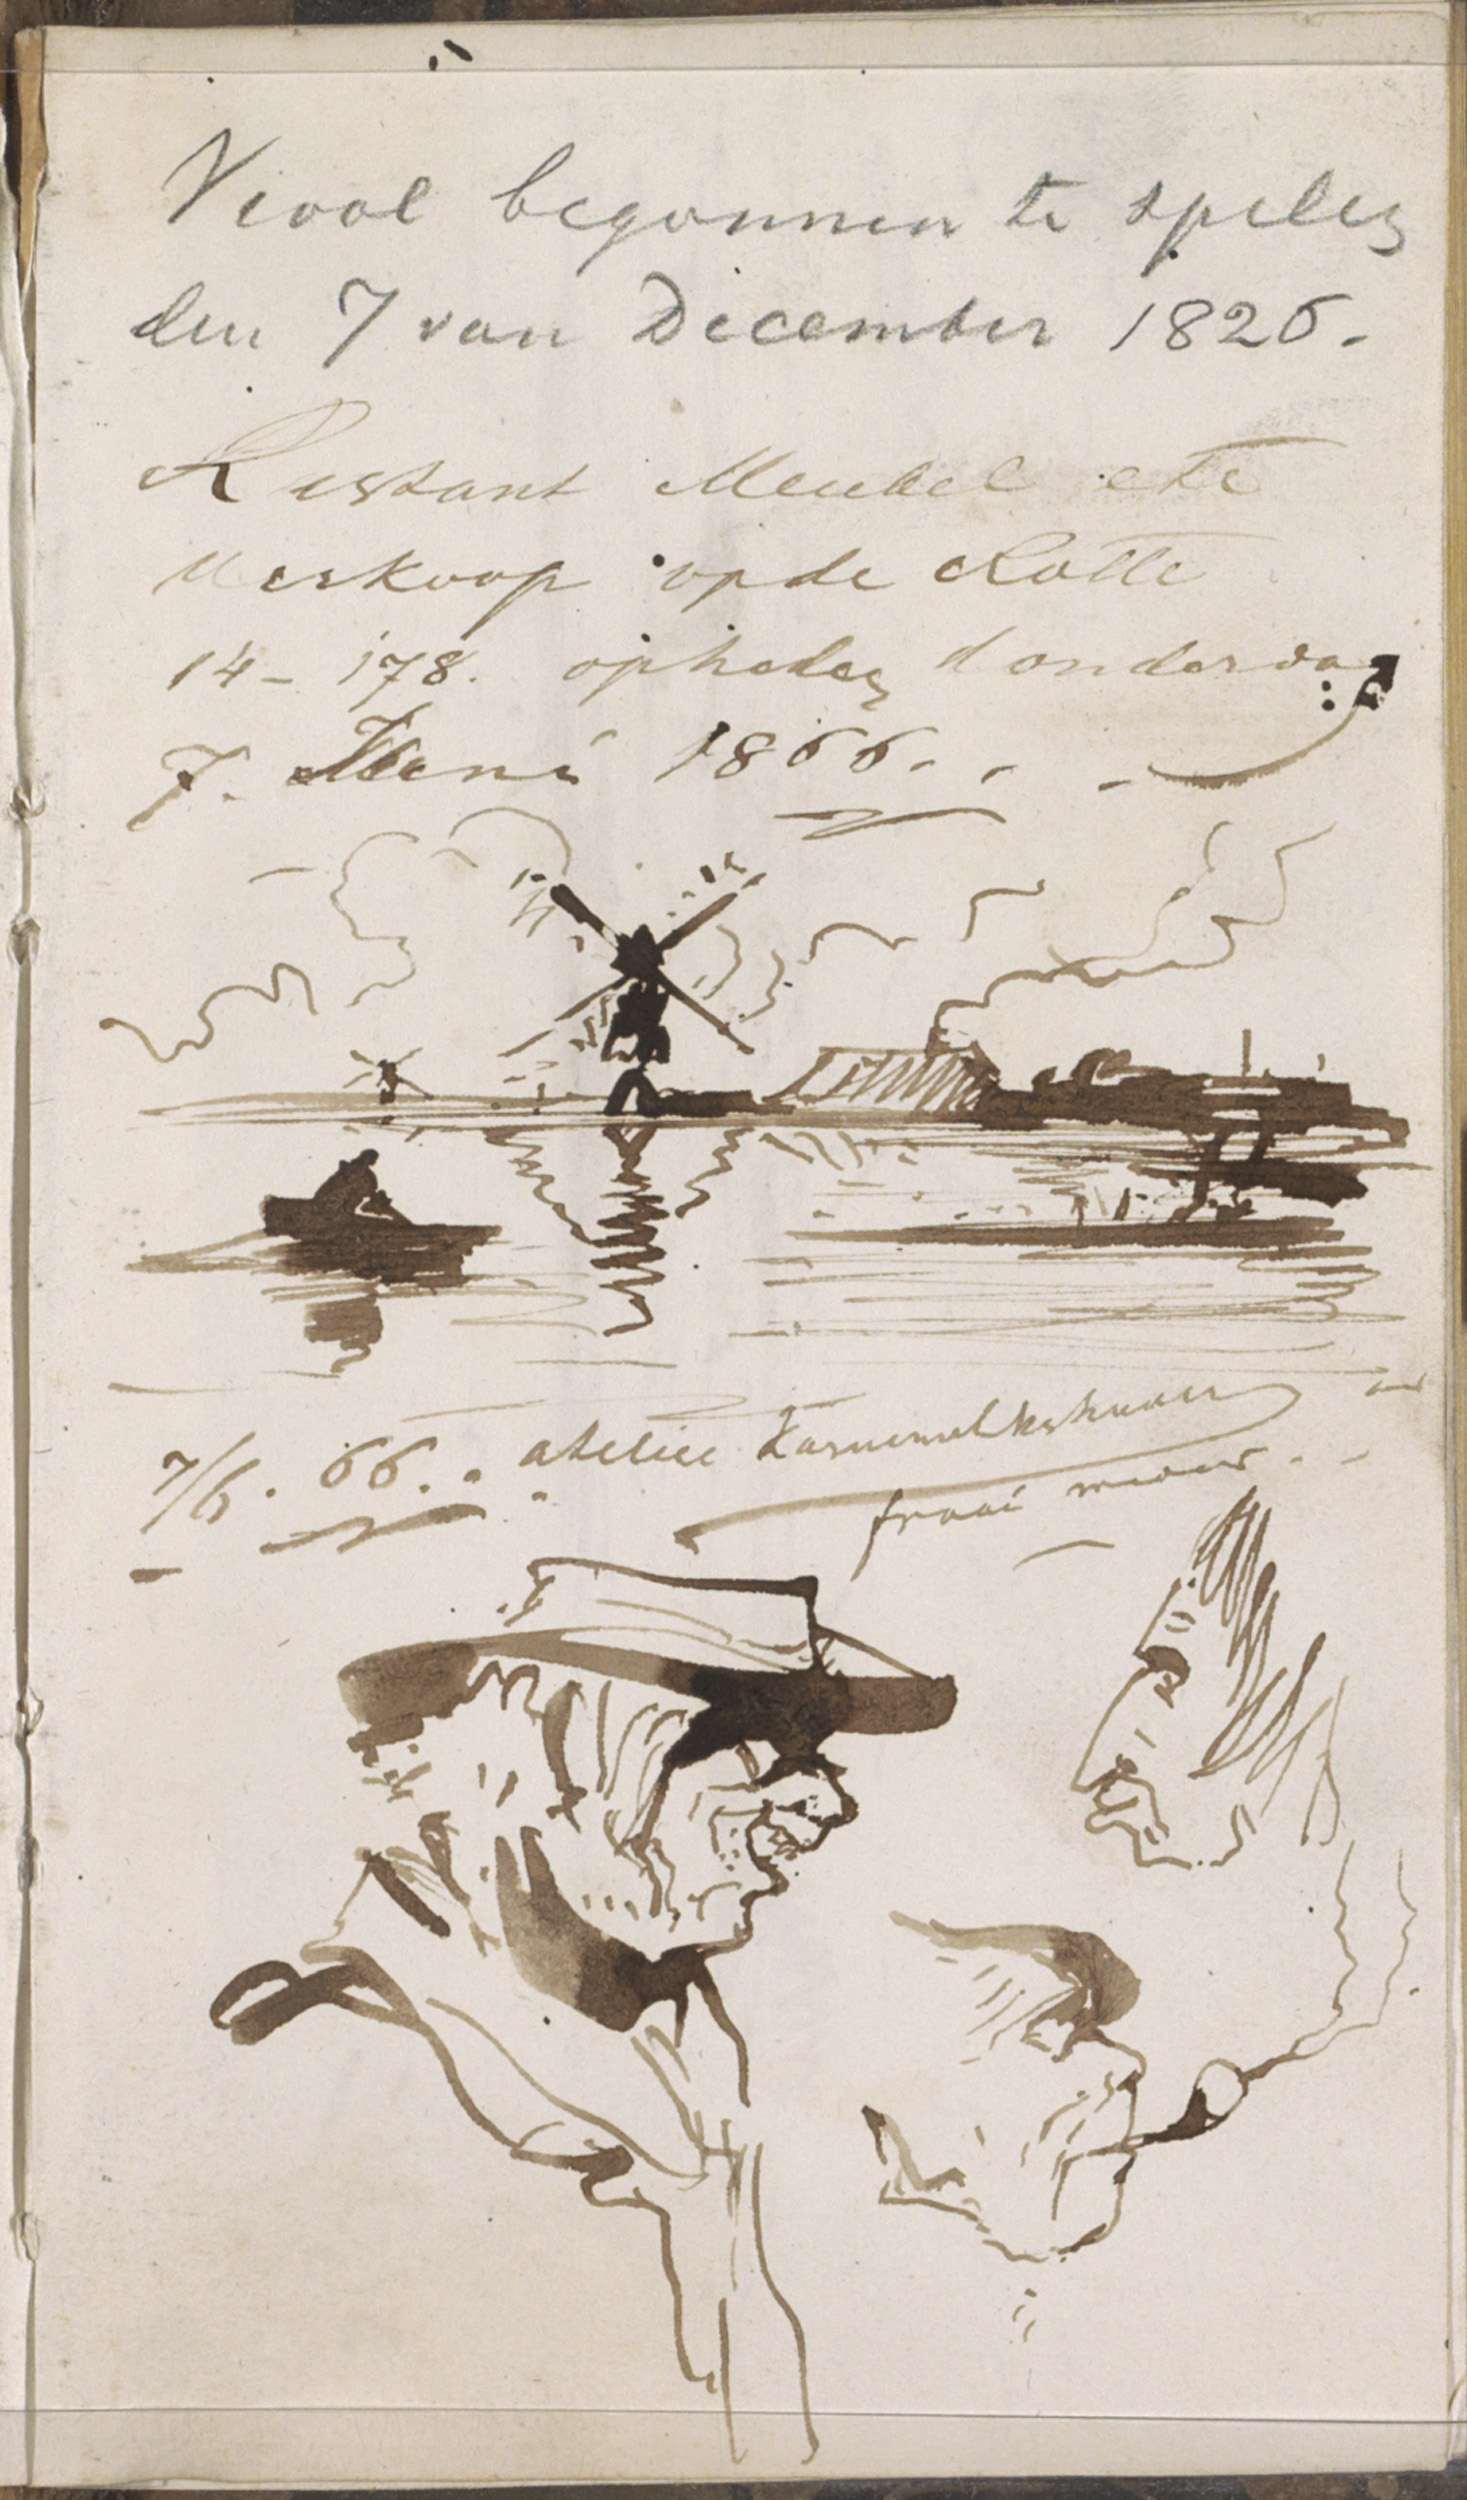 Viool begonnen te spelen
den 7 van December 1826.
Restant Meubel etc
Verkoop op de Rotte
14 - 178. opheden donderdag
7. Juni 1866.
7/6. 66. atelier Karnemelkshaven
fraai weder.